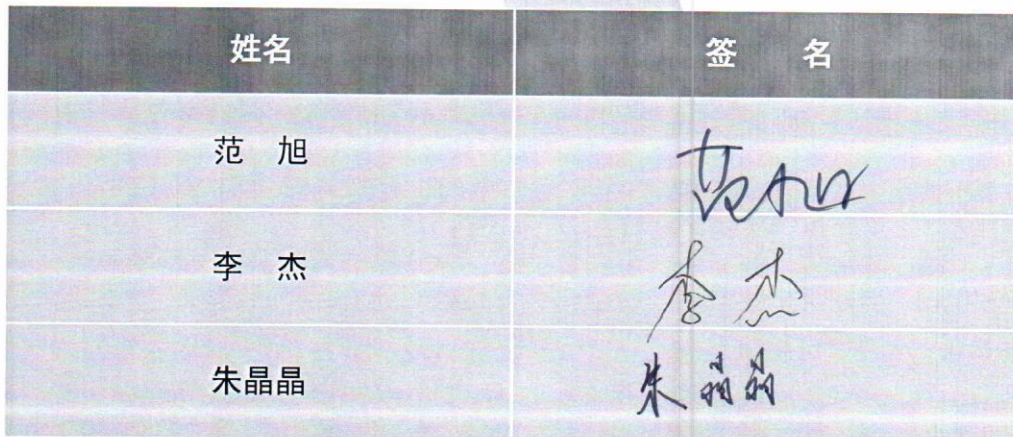 姓名 签 名
范 旭 范旭
李 杰 李杰
朱晶晶 朱晶晶